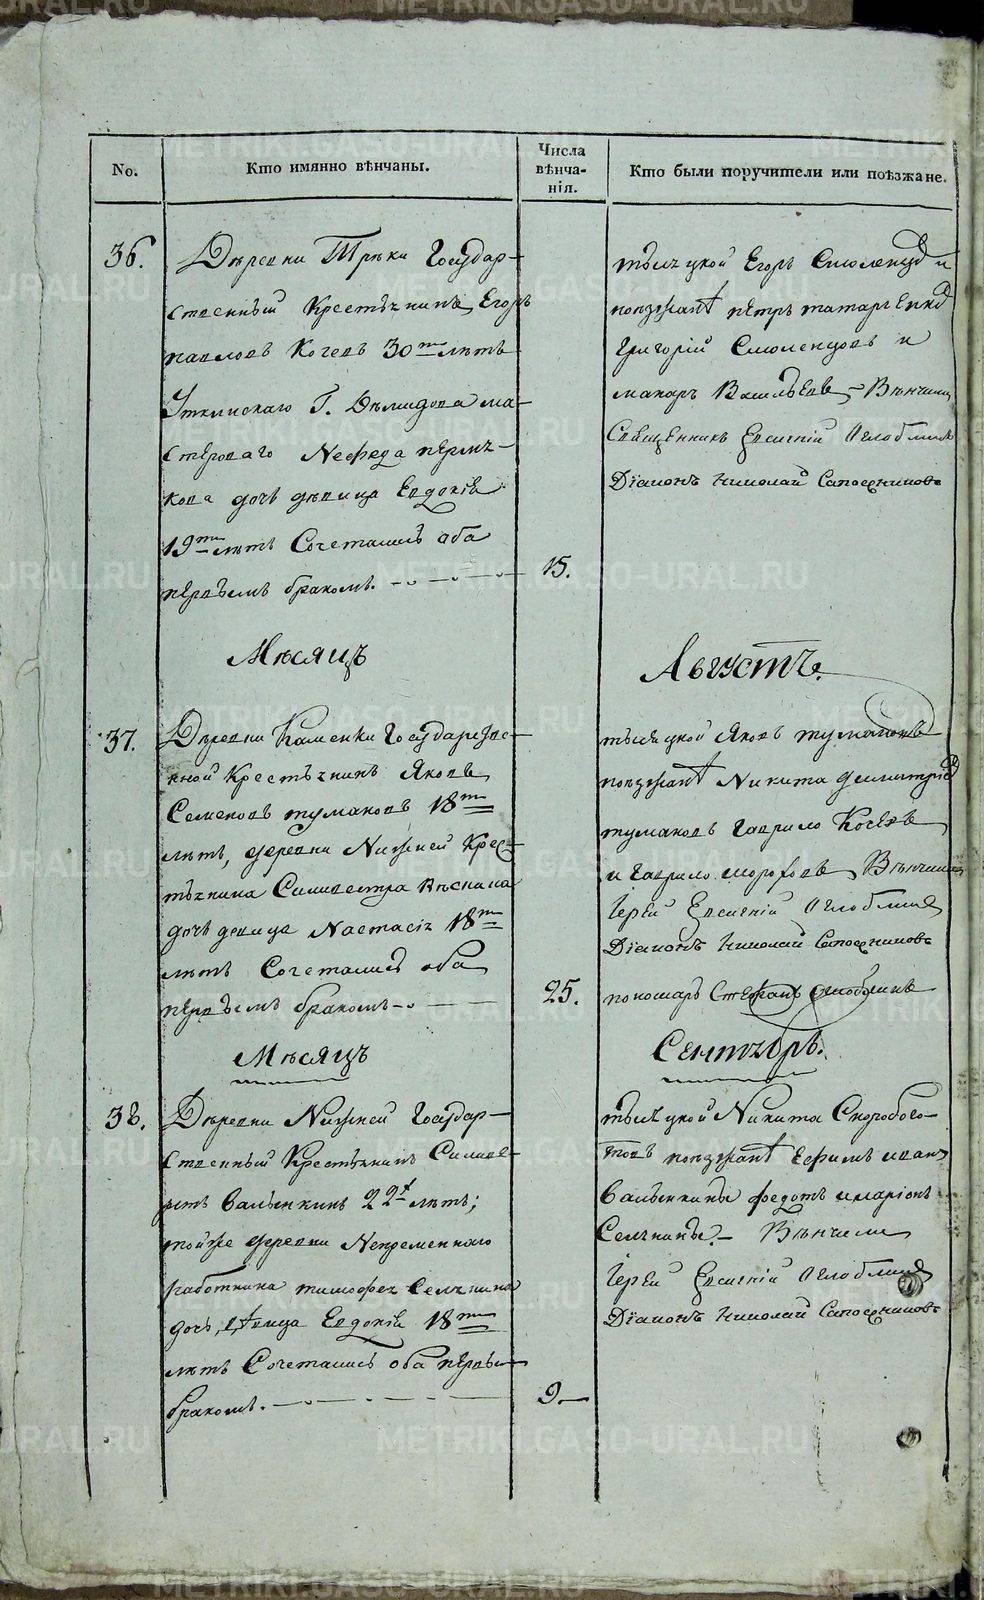 No.
Кто имянно вѣнчаны.
Числа
вѣнча-
нія.
Кто были поручители или поѣзжане.
36.
Деревни Трѣки Государ-
ственный Крестьянинъ Егоръ
павловъ Кочевъ 30ти лѣтъ
Уткинскаго Г. Демидова ма-
стероваго Нефеда пермя-
кова дочь девица Евдокія
19ти лѣтъ Сочетались оба
первымъ бракомъ.
15.
тысяцкой Егоръ Смоленцовъ и
поезжаня петръ татарченковъ
Григорій Смоленцовъ и
макаръ Васильевъ Вѣнчали
Священникъ Евсигній Оглоблинъ
Діаконъ Николай Сапожниковъ
Мѣсяцъ
Августъ.
37.
Деревни Каменки Государстве-
нной Крестьянинъ Яковъ
Семеновъ тумаковъ 18ти
лѣтъ, деревни Нижней Крес-
тьянина Силивестра
дочь девица Настасія 18ти
лѣтъ Сочетались оба
первымъ бракомъ
25.
тысяцкой Яковъ тумаковъ
поезжаня Никита
тумаковъ гаврило Косвѣ
и гаврило морозовъ Вѣнчали
Іерей Евсигній Оглоблинъ
Діаконъ Николай Сапожниковъ
пономарь Стефанъ Оглоблинъ
Мѣсяцъ
Сентябрь.
38.
Деревни Нижней Государ-
ственный Крестьянинъ Силиве-
стръ Валынкинъ 22х лѣтъ;
тойже деревни Непременнаго
работника тимофея Селянина
дочь девица Евдокія 18ти
лѣтъ Сочетались оба первым
бракомъ.
9
тысяцкой Никита Скоробого-
товъ поезжаня Ефимъ иванъ
Валынкины федотъ иларіонъ
Селянины. Вѣнчали
Іерей Евсигній Оглоблинъ
Діаконъ Николай Сапожниковъ
METRIKI.GASO-URAL.RU